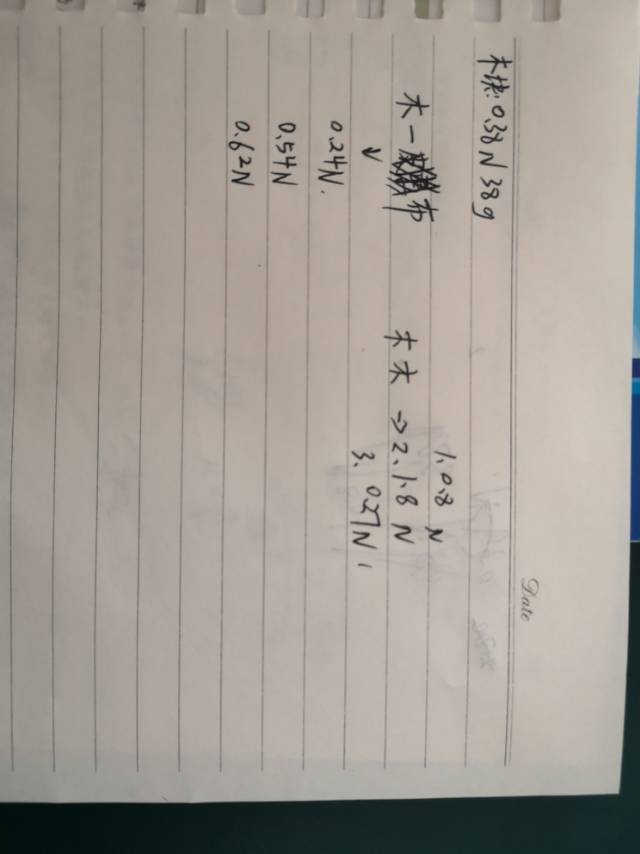 Date
木块:0.38N 38g
木一布
↓
0.24N.
0.54N
0.62N
木木 → 1. 0.8 N
2. 1.8 N
3. 0.27N